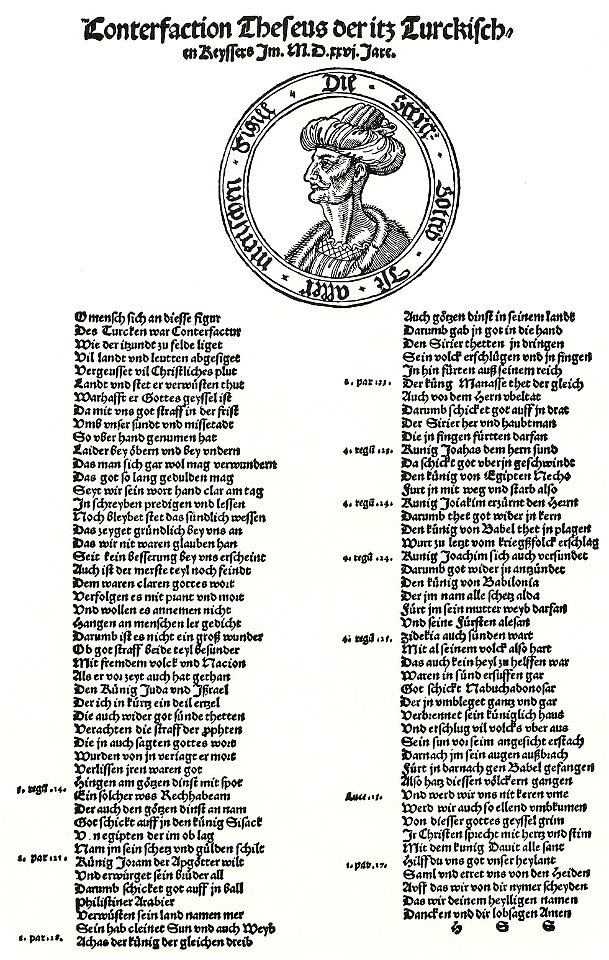 Conterfaction Theseus der itz Turckisch⸗
en Keyssers Jm. M.D.xxvj. Jare.
Die · Sterg: · Gottes · Ist · aller · menschen · Figure
O mensch sich an diesse figur
Des Turcken war Conterfactur
Wie der itzundt zu felde liget
Vil landt vnd leutten abgesiget
Vergeusset vil Christliches plut
Landt vnd stet er verwüsten thut
Warhafft er Gottes geyssel ist
Da mit vns got straff in der frist
Vmb vnser sündt vnd missetadt
So vber hand genumen hat
Laider bey öbern vnd bey vndern
Das man sich gar wol mag verwundern
Das got so lang gedulden mag
Seyt wir sein wort hand clar am tag
Jn schreyben predigen vnd lessen
Noch bleybet stet das sündlich wessen
Das zeyget gründlich bey vns an
Das wir nit waren glauben han
Seit kein besserung bey vns erscheint
Auch ist der merste teyl noch feindt
Dem waren claren gottes wort
Verfolgen es mit prant vnd mort
Vnd wollen es annemen nicht
Hangen an menschen ler gedicht
Darumb ist es nicht ein groß wunder
Ob got straff beide teyl besunder
Mit fremdem volck vnd Nacion
Als er vor zeyt auch hat gethan
Den Künig Juda vnd Jßrael
Der ich in kürtz ein deil ertzel
Die auch wider got sünde thetten
Verachten die straff der pphten
Die in auch sagten gottes wort
Wurden von jn veriagt er mort
Verlissen jren waren got
Hingen am götzen dinst mit spot
3. regū .14. Ein solcher was Rechhabeam
Der auch den götzen dinst an nam
Got schickt auff jn den künig Sisack
V n egipten der im ob lag
Nam jm sein schetz vnd gülden schilt
2. par .121. Künig Joram der Apgötter wilt
Vnd erwürget sein brüder all
Darumb schicket got auff jn ball
Philistiner Arabier
Verwüsten sein land namen mer
Sein hab cleinet Sun vnd auch Weyb
2. par .28. Achas der künig der gleichen dreib
Auch götzen dinst in seinem lands
Darumb gab jn got in die hand
Den Sirier thetten jn dringen
Sein volck erschlügen vnd jn fingen
Jn hin fürten auß seinem reich
2. par .33. Der küng Manasse thet der gleich
Auch vor dem Hern vbeltat
Darumb schicket got auff jn drat
Der Sirier her vnd haubtman
Die jn fingen fürtten darfan
4. regū .23. Kunig Joahas dem hern sund
Da schickt got vber jn geschwinde
Den künig von Egipten Necho
Furt jn mit weg vnd starb also
4. regū .24. Kunig Joiakim erzürnt den Hern
Darumb thet got wider jn kern
Den künig von Babel thet jn plagen
Wurt zu letzt vom kriegßfolck erschlag
4. regū .24. Kunig Joachim sich auch versündet
Darumb got wider jn antzündet
Den künig von Babilonia
Der jm nam alle schetz alda
Fürt jm sein mutter weyb darfan
Vnd seine Fürsten alesan
4. regū .25. Zidekia auch sünden wart
Mit al seinem volck also hart
Das auch kein heyl zu helffen war
Waren in sünd ersuffen gar
Got schickt Nabuchadonosar
Der jn vmbleget gantz vnd gar
Verbrennet sein küniglich haus
Vnd erschlug vil volcks vber aus
Sein sun vor seim angesicht erstach
Darnach jm sein augen außbrach
Fürt jn darnach gen Babel gefangen
Also hatz diessen völckern gangen
Luce .13. Vnd werd wir vns nit keren vme
Werd wir auch so ellend vmbkumen
Von diesser gottes geyssel grim
Jr Christen sprecht mit hertz vnd stim
Mit dem kunig Dauit alle sant
1. par. 17. Hilff du vns got vnser heylant
Saml vnd erret vns von den Heiden
Auff das wir von dir nymer scheyden
Das wir deinem heylligen namen
Dancken vnd dir lobsagen Amen
H S S